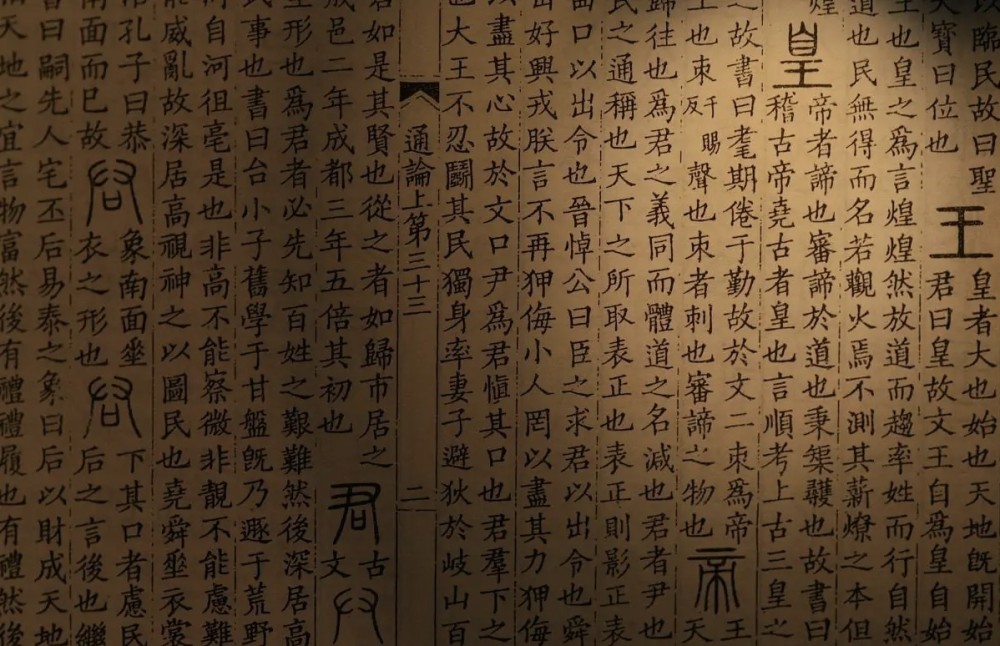 以臨民故曰聖
大寶曰位也
王
皇者大也始也天地旣開始
君曰皇故文王自爲皇自始
王也皇之爲言煌煌然放道而趨率姓而行自然
道也民無得而名若觀火焉不測其薪燎之本但
煌
皇
帝者諦也審諦於道也秉韄也故書曰
稽古帝堯古者皇也言順考上古三皇之
之故書曰耄期倦于勤故於文二朿爲帝
上也朿千賜反聲也朿者刺也審諦之物也
帝
王
天
歸往也爲君之義同而體道之名減也君者尹也
民之通稱也天下之所取表正也表正則影正表
曲口以出令也晉悼公曰臣之求君以出令也舜
出好興戎朕言不再狎侮小人罔以盡其力狎侮
以盡其心故於文口尹爲君愼其口也君羣下之
也大王不忍鬭其民獨身率妻子避狄於岐山百
通論上第三十三 二
君如是其賢也從之者如歸市居之
成邑二年成都三年五倍其初也
君
古
文
坐形也爲君者必先知百姓之艱難然後深居高
民事也書曰台小子舊學于甘盤旣乃遯于荒野
自河徂亳是也非高不能察微非靚不能慮難
能威亂故深居高視神之以圖民也堯舜垂衣裳
孔子曰恭
南面而巳故
象南面垂
衣之形也
下其口者慮民
后之言後也繼
曰嗣先人宅丕后易泰之象曰后以財成天地
天地之宜言物富然後有禮禮履也有禮然後